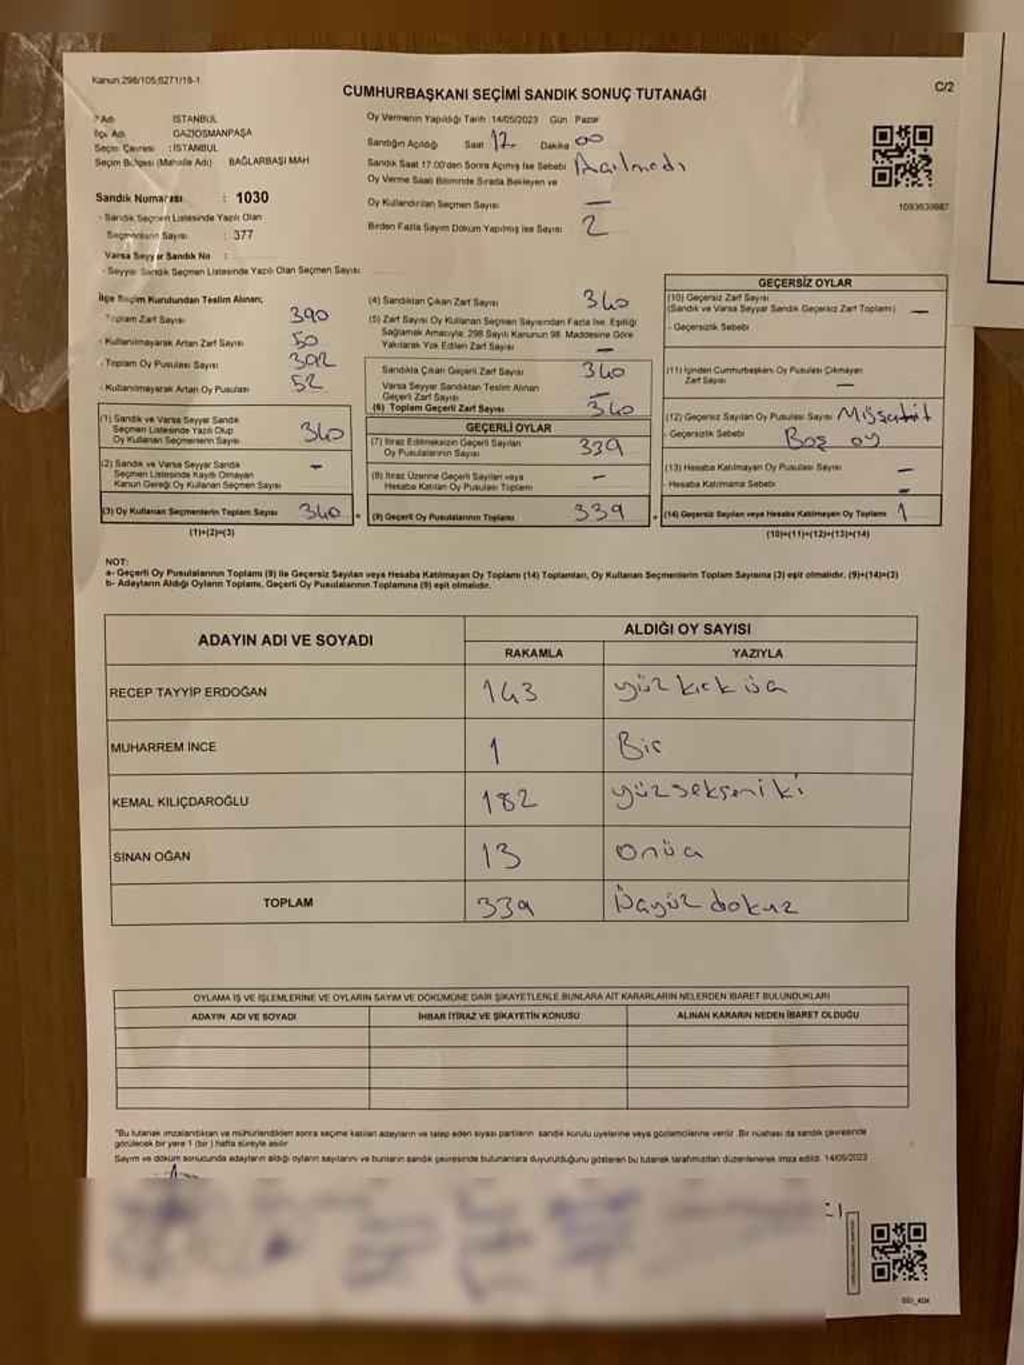 Kanun 298/105;6271/18-1
C/2
CUMHURBAŞKANI SEÇİMİ SANDIK SONUÇ TUTANAĞI
İl Adı : İSTANBUL
İlçe Adı : GAZİOSMANPAŞA
Seçim Çevresi : İSTANBUL
Seçim Bölgesi (Mahalle Adı) : BAĞLARBAŞI MAH
Sandık Numarası : 1030
- Sandık Seçmen Listesinde Yazılı Olan
Seçmenlerin Sayısı : 377
Varsa Seyyar Sandık No :
- Seyyar Sandık Seçmen Listesinde Yazılı Olan Seçmen Sayısı:
Oy Vermenin Yapıldığı Tarih :14/05/2023 Gün : Pazar
Sandığın Açıldığı Saat 17 Dakika 00
Sandık Saat 17.00'den Sonra Açılmış İse Sebebi Açılmadı
Oy Verme Saati Bitiminde Sırada Bekleyen ve
Oy Kullandırılan Seçmen Sayısı —
Birden Fazla Sayım Döküm Yapılmış İse Sayısı 2
1093639987
İlçe Seçim Kurulundan Teslim Alınan;
- Toplam Zarf Sayısı 390
- Kullanılmayarak Artan Zarf Sayısı 50
- Toplam Oy Pusulası Sayısı 392
- Kullanılmayarak Artan Oy Pusulası 52
(1) Sandık ve Varsa Seyyar Sandık
Seçmen Listesinde Yazılı Olup
Oy Kullanan Seçmenlerin Sayısı 340
(2) Sandık ve Varsa Seyyar Sandık
Seçmen Listesinde Kayıtlı Olmayan
Kanun Gereği Oy Kullanan Seçmen Sayısı —
(3) Oy Kullanan Seçmenlerin Toplam Sayısı 340
(1)+(2)=(3)
(4) Sandıktan Çıkan Zarf Sayısı 340
(5) Zarf Sayısı Oy Kullanan Seçmen Sayısından Fazla İse, Eşitliği
Sağlamak Amacıyla, 298 Sayılı Kanunun 98. Maddesine Göre
Yakılarak Yok Edilen Zarf Sayısı —
Sandıkta Çıkan Geçerli Zarf Sayısı 340
Varsa Seyyar Sandıktan Teslim Alınan
Geçerli Zarf Sayısı —
(6) Toplam Geçerli Zarf Sayısı 340
GEÇERLİ OYLAR
(7) İtiraz Edilmeksizin Geçerli Sayılan
Oy Pusulalarının Sayısı 339
(8) İtiraz Üzerine Geçerli Sayılan veya
Hesaba Katılan Oy Pusulası Toplamı —
(9) Geçerli Oy Pusulalarının Toplamı 339
GEÇERSİZ OYLAR
(10) Geçersiz Zarf Sayısı
(Sandık ve Varsa Seyyar Sandık Geçersiz Zarf Toplamı) —
- Geçersizlik Sebebi
(11) İçinden Cumhurbaşkanı Oy Pusulası Çıkmayan
Zarf Sayısı —
(12) Geçersiz Sayılan Oy Pusulası Sayısı
- Geçersizlik Sebebi Boş oy
(13) Hesaba Katılmayan Oy Pusulası Sayısı —
- Hesaba Katılmama Sebebi —
(14) Geçersiz Sayılan veya Hesaba Katılmayan Oy Toplamı 1
(10)+(11)+(12)+(13)=(14)
NOT:
a- Geçerli Oy Pusulalarının Toplamı (9) ile Geçersiz Sayılan veya Hesaba Katılmayan Oy Toplamı (14) Toplamları, Oy Kullanan Seçmenlerin Toplam Sayısına (3) eşit olmalıdır. (9)+(14)=(3)
b- Adayların Aldığı Oyların Toplamı, Geçerli Oy Pusulalarının Toplamına (9) eşit olmalıdır.
ADAYIN ADI VE SOYADI
ALDIĞI OY SAYISI
RAKAMLA YAZIYLA
RECEP TAYYİP ERDOĞAN 143 yüz kırk üç
MUHARREM İNCE 1 Bir
KEMAL KILIÇDAROĞLU 182 yüzseksen iki
SİNAN OĞAN 13 onüç
TOPLAM 339 Üçyüz dokuz
OYLAMA İŞ VE İŞLEMLERİNE VE OYLARIN SAYIM VE DÖKÜMÜNE DAİR ŞİKAYETLERLE BUNLARA AİT KARARLARIN NELERDEN İBARET BULUNDUKLARI
ADAYIN ADI VE SOYADI İHBAR İTİRAZ VE ŞİKAYETİN KONUSU ALINAN KARARIN NEDEN İBARET OLDUĞU
"Bu tutanak imzalandıktan ve mühürlendikten sonra seçime katılan adayların ve talep eden siyasi partilerin sandık kurulu üyelerine veya gözlemcilerine verilir. Bir nüshası da sandık çevresinde
görülecek bir yere 1 (bir ) hafta süreyle asılır
Sayım ve döküm sonucunda adayların aldığı oyların sayılarını ve bunların sandık çevresinde bulunanlara duyurulduğunu gösteren bu tutanak tarafımızdan düzenlenerek imza edildi. 14/05/2023